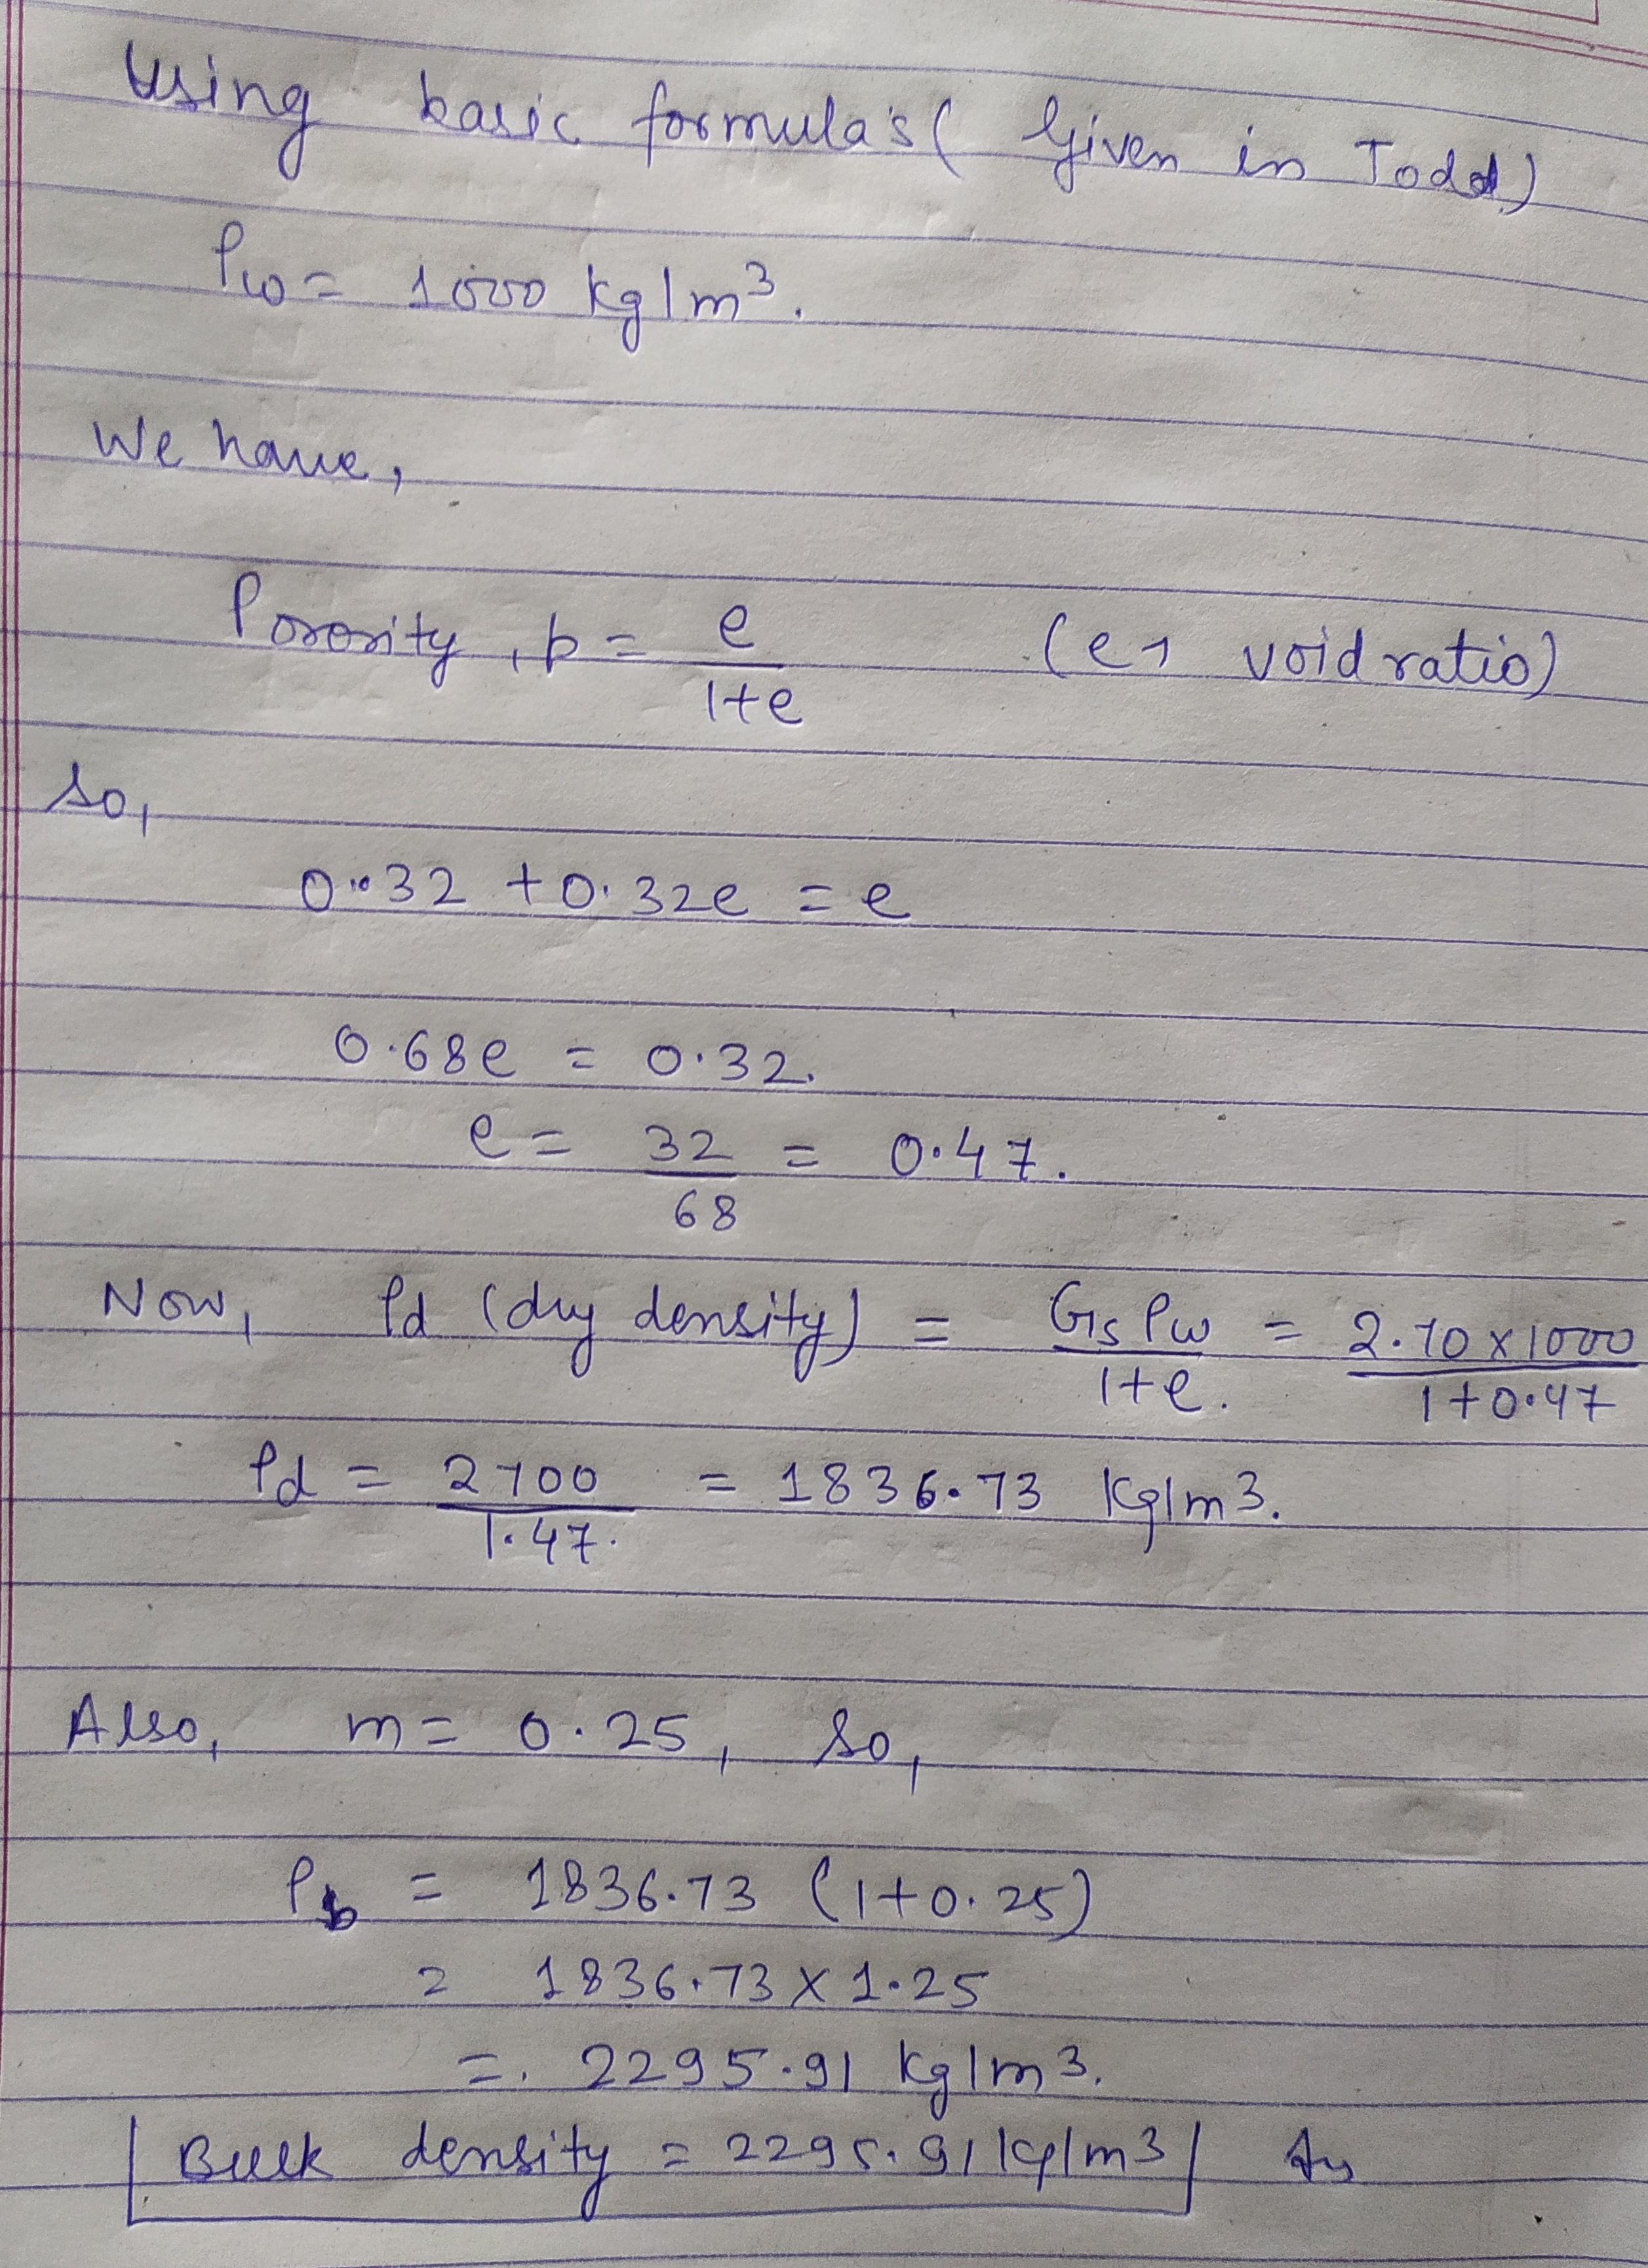 Using basic formula's ( Given in Todd)
ρw = 1000 kg/m³.
We have,
Porosity, p = e/1+e (e → void ratio)
So,
0.32 + 0.32e = e
0.68e = 0.32.
e = 32/68 = 0.47.
Now, ρd (dry density) = Gs ρw/1+e. = 2.70 x 1000/1+0.47
ρd = 2700/1.47. = 1836.73 Kg/m3.
Also, m = 0.25, So,
ρb = 1836.73 (1+0.25)
= 1836.73 x 1.25
=. 2295.91 kg/m3.
Bulk density = 2295.91 kg/m3 Ans